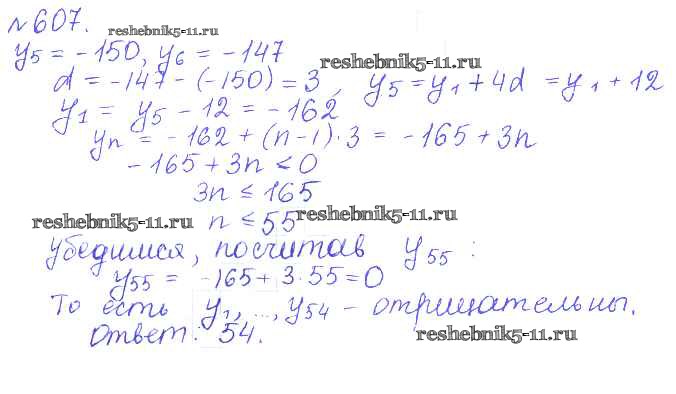 №607. reshebnik5-11.ru
y₅ = -150, y₆ = -147 reshebnik5-11.ru
d = -147 - (-150) = 3, y₅ = y₁ + 4d = y₁ + 12
y₁ = y₅ - 12 = -162
yₙ = -162 + (n-1)·3 = -165 + 3n
-165 + 3n < 0
3n ≤ 165
reshebnik5-11.ru n ≤ 55 reshebnik5-11.ru
убедимся, посчитав y₅₅ :
y₅₅ = -165 + 3·55 = 0
То есть y₁, ..., y₅₄ - отрицательны.
Ответ: 54. reshebnik5-11.ru